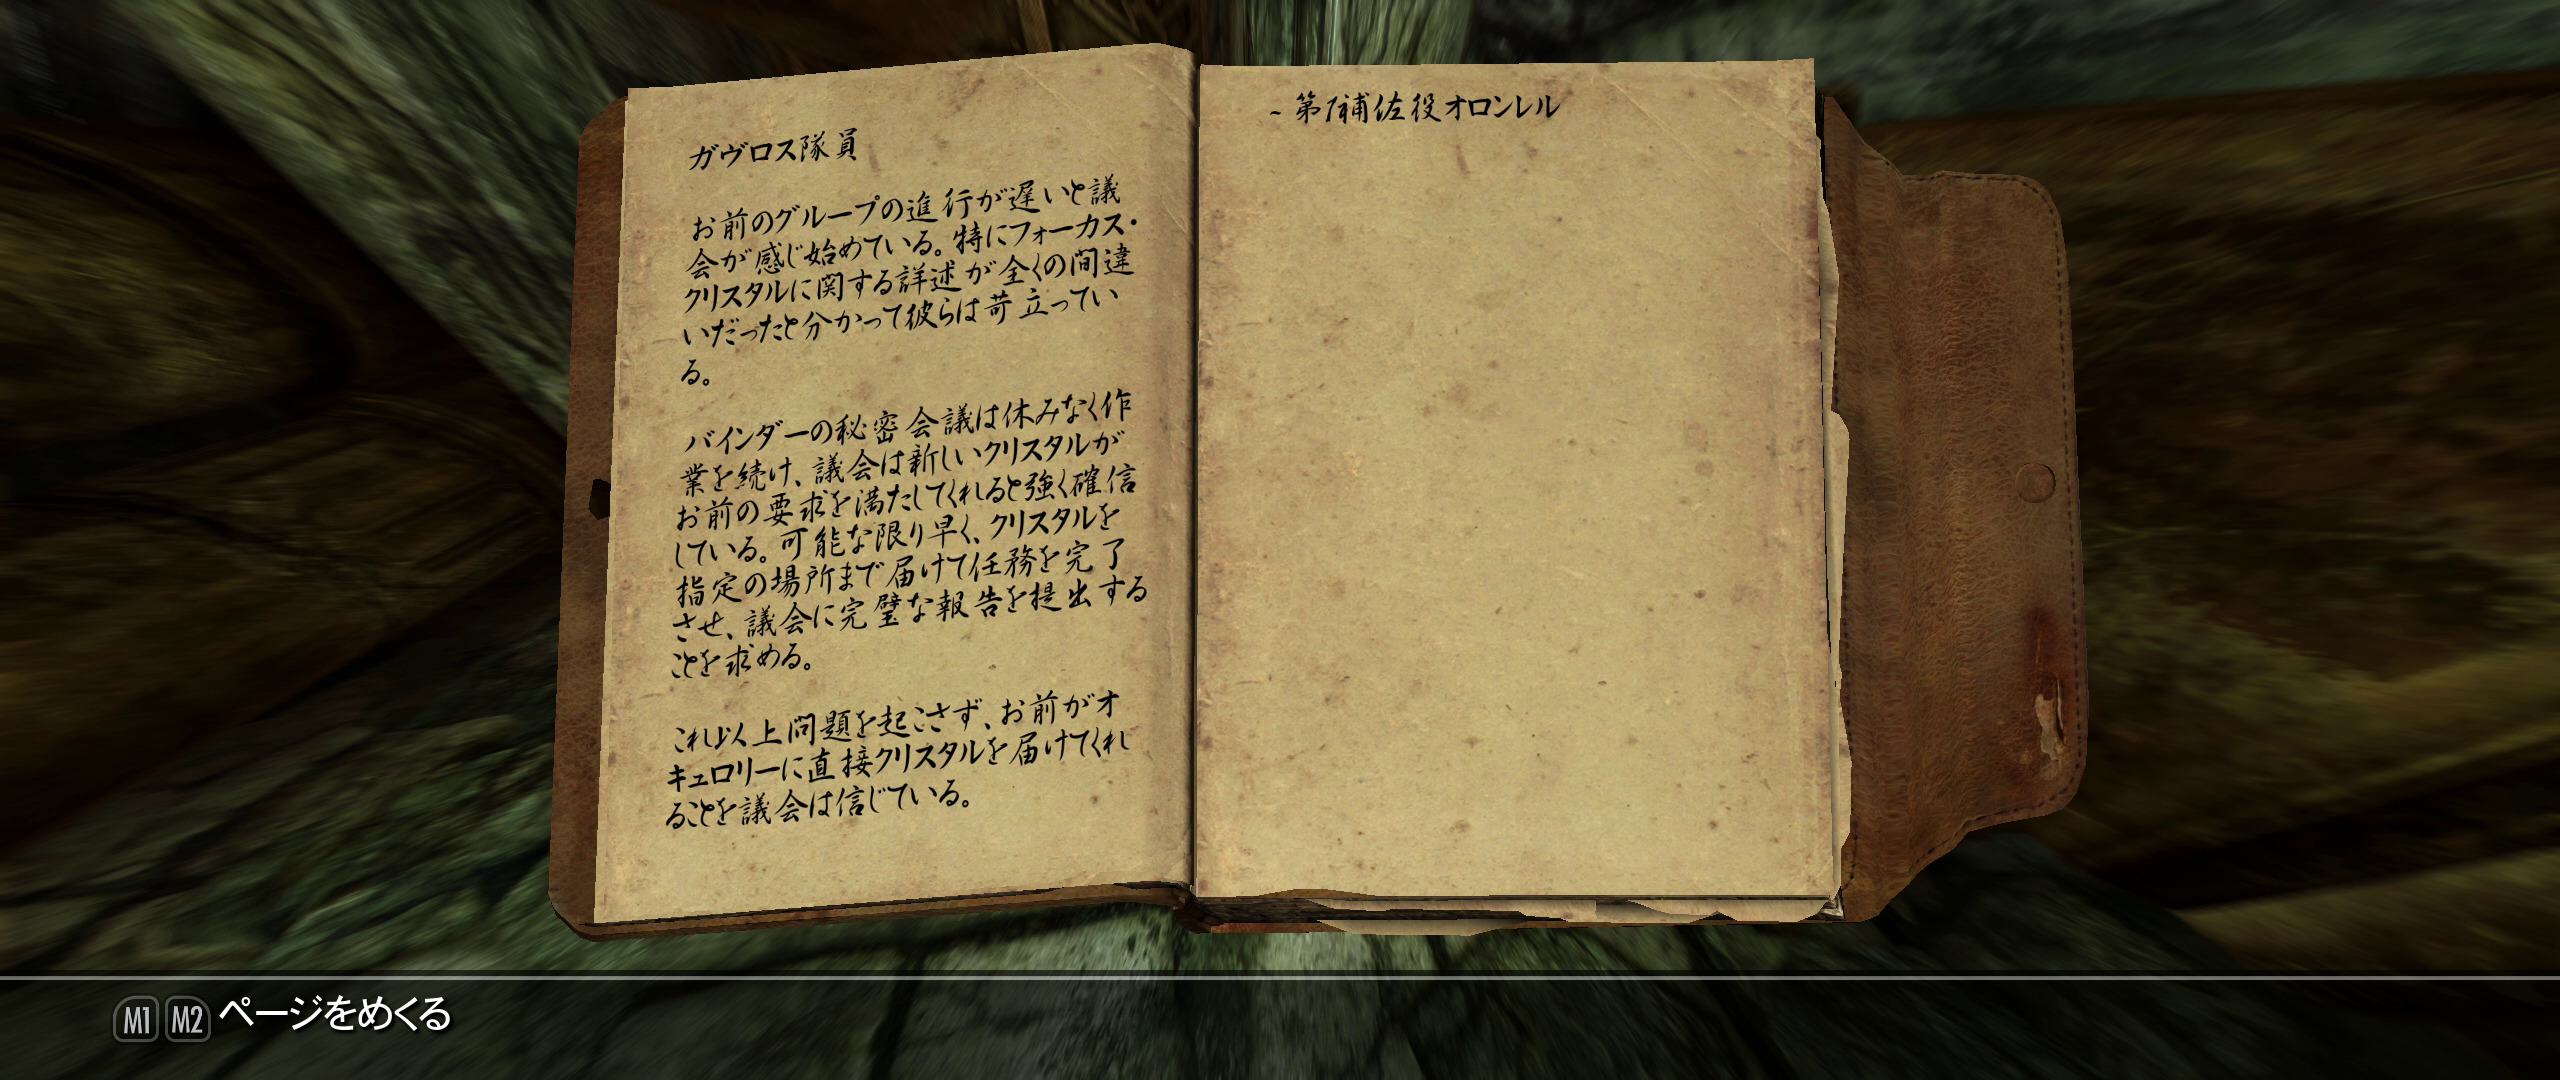 ガヴロス隊員
お前のグループの進行が遅いと議
会が感じ始めている。特にフォーカス・
クリスタルに関する詳述が全くの間違
いだったと分かって彼らは苛立ってい
る。
バインダーの秘密会議は休みなく作
業を続け、議会は新しいクリスタルが
お前の要求を満たしてくれると強く確信
している。可能な限り早く、クリスタルを
指定の場所まで届けて任務を完了
させ、議会に完璧な報告を提出する
ことを求める。
これ以上問題を起こさず、お前がオ
キュロリーに直接クリスタルを届けてくれ
ることを議会は信じている。
~ 第1補佐役オロンレル
M1 M2 ページをめくる